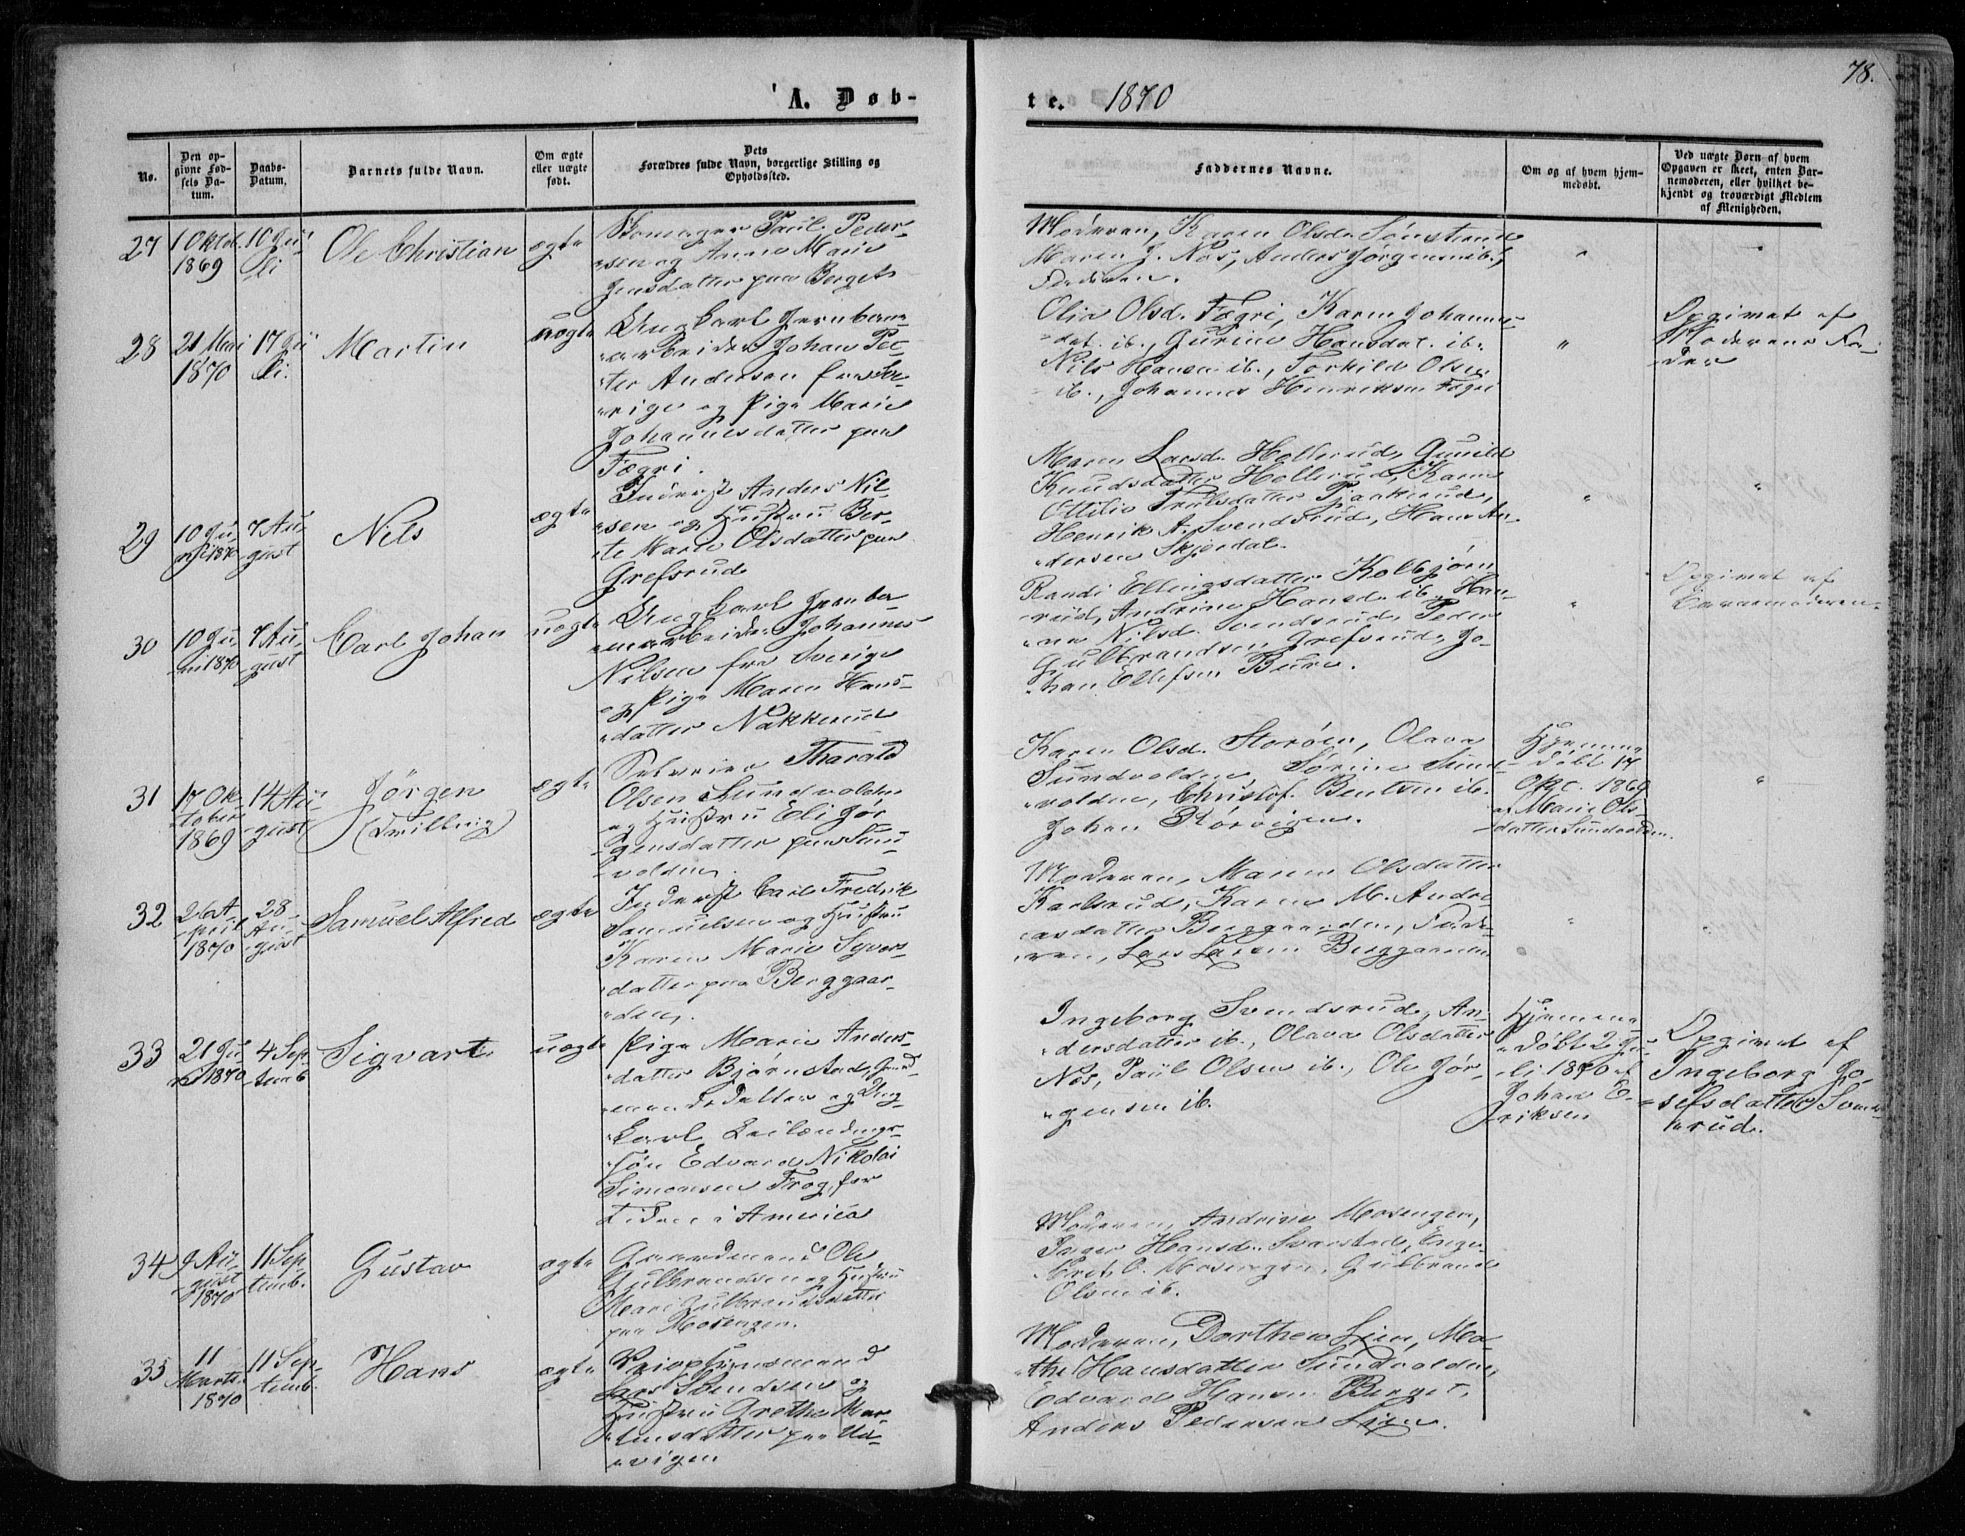 78.
A. Døb-
te. 1870
No.
Den op-
givne Fød-
sels Da-
tum.
Daabs-
Datum.
Barnets fulde Navn.
Om ægte
eller uægte
født.
Dets
Forældres fulde Navn, borgerlige Stilling og
Opholdssted.
Faddernes Navne.
Om og af hvem hjem-
medøbt.
Ved uægte Børn af hvem
Opgaven er skeet, enten Bar-
nemoderen, eller hvilket be-
kjendt og troværdigt Medlem
af Menigheden.
27
1 Oktob.
1869
10 Ju-
li
Ole Christian
ægte
Skomager Paul Peder-
sen og Anne Marie
Jensdatter paa Berget
Moderen, Karen Olsd. Sønsterud
Maren J. Næs, Anders Jørgensen ib.,
Faderen.
28
21 Mai
1870
17 Ju-
li.
Martin
uægte
Ungkarl Jernbane-
arbeider Johan Pet-
ter Anderson fra Sve-
rige og Pige Marie
Johannesdatter paa
Fægri.
Olia Olsd. Fægri, Karen Johannes-
dat. ib., Gurine Hansdat. ib.
Nils Hansen ib., Torkild Olsen
ib., Johannes Henriksen Fægri
Opgivet af
Moderens Fa-
der
29
10 Ju-
ni 1870
7 Au-
gust
Nils
ægte
Inderst Anders Nil-
sen og Hustru Ber-
te Marie Olsdatter paa
Grefsrud
Maren Larsd. Hollerud, Gunild
Knudsdatter Hollerud, Karen
Ottilie Trulsdatter Pjaakerud,
Henrik A. Svendsrud, Hans An-
dersen Skjerdal.
30
10 Ju-
ni 1870
7 Au-
gust
Carl Johan
uægte
Ungkarl Jernba-
nearbeider Johannes
Nilsen fra Sverige
og Pige Maren Hans-
datter Nakkerud
Randi Ellingsdatter Kolbjørn-
rud, Andrine Hansd. ib., Han-
na Nilsd. Svendsrud, Peder
Gulbrandsen Grefsrud, Jo-
han Ellefsen Bure.
Opgivet af
Barnemoderen.
31
17 Ok-
tober
1869
14 Au-
gust
Jørgen
(Tvilling)
ægte
Selveier Tharald
Olsen Sundvolden
og Hustru Eli Jør-
gensdatter paa Sun-
volden.
Karen Olsd. Storøen, Olava
Sundvolden, Sørine Sund-
volden, Christof. Bentsen ib.
Johan Rørvigen.
Hjemme-
døbt 17
Okt. 1869
af Marie Ols-
datter Sundvolden.
32
26 A-
pril
1870
28
Au-
gust
Samuel Alfred
ægte
Inderst Carl Fredrik
Samuelsen og Hustru
Karen Marie Syvers-
datter paa Berggaar-
den.
Moderen, Maren Olsdatter
Karlsrud, Karen M. Andre-
asdatter Berggaarden, Fade-
ren, Lars Larsen Berggaarden
33
21 Ju-
ni 1870
4 Sep-
temb
Sigvart
uægte
Pige Marie Anders-
datter Bjørnstad, Gaard-
mandsdatter og Ung-
karl Leilændings-
søn Edvard Nikolai
Simonsen Frog, for
Tiden i America
Ingeborg Svendsrud, An-
dersdatter ib., Olava Olsdatter
Næs, Paul Olsen ib., Ole Jør-
gensen ib.
Hjemme-
døbt 2 Ju-
li 1870 af
Johan E-
riksen
Opgivet af
Ingeborg Jo-
sefsdatter Svends-
rud.
34
9 Au-
gust
1870
11 Sep-
temb.
Gustav
ægte
Gaardmand Ole
Gulbrandsen og Hustru
Mari Gulbrandsdatter
paa Mosengen.
Moderen, Andrine Mosengen,
Inger Hansd. Svarstad, Enge-
bret O. Mosengen, Gulbrand
Olsen ib.
35
11
Marts
1870
11 Sep-
temb.
Hans
ægte
Lars Svendsen og
Hustru Grethe Mar-
tinsdatter paa Ut-
vigen
Moderen, Dorthea Lien, Ma-
the Hansdatter Sundvolden,
Edvard Hansen Berget,
Anders Pedersen Lien.